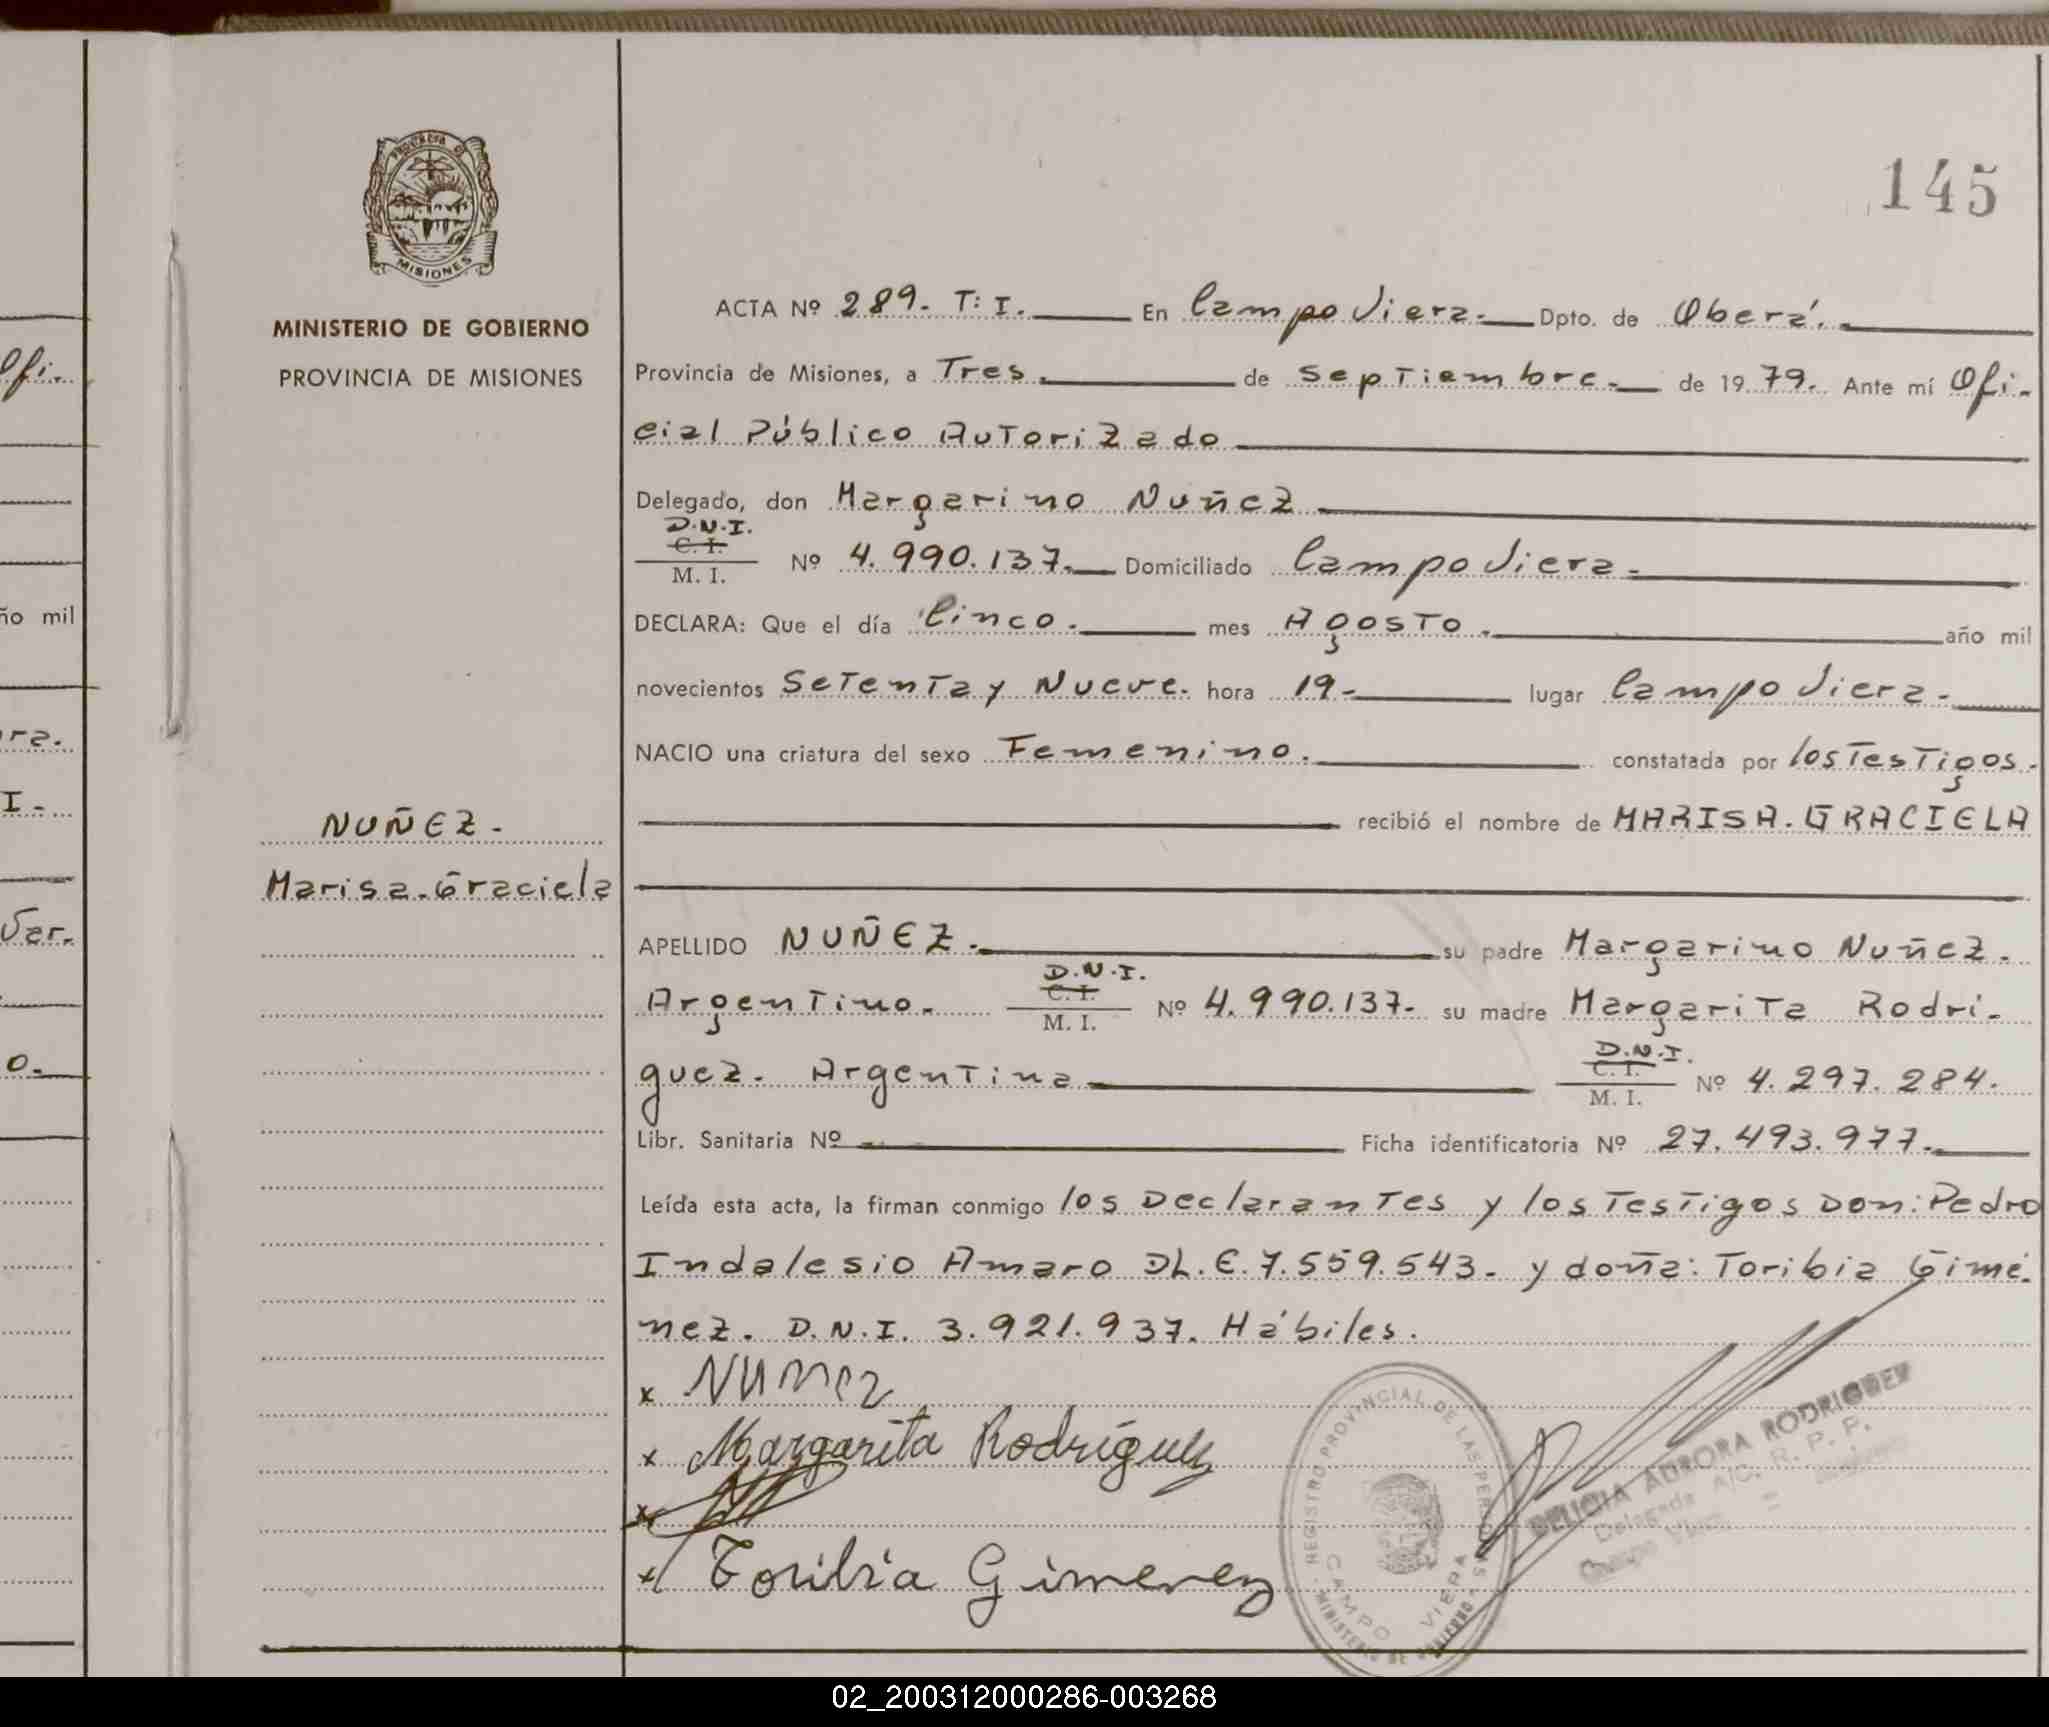 145
PROVINCIA DE
MISIONES
MINISTERIO DE GOBIERNO
PROVINCIA DE MISIONES
NUÑEZ.
Marisa. Graciela
ACTA Nº 289. T: I. En Campo Viera. Dpto. de Oberá.
Provincia de Misiones, a Tres. de Septiembre. de 1979. Ante mí Ofi-
cial Público Autorizado
Delegado, don Margarino Nuñez
D.N.I.
C. I.
M. I. Nº 4.990.137. Domiciliado Campo Viera.
DECLARA: Que el día Cinco. mes Agosto. año mil
novecientos Setenta y Nueve. hora 19- lugar Campo Viera.
NACIO una criatura del sexo Femenino. constatada por los Testigos.
recibió el nombre de MARISA. GRACIELA
APELLIDO NUÑEZ. su padre Margarino Nuñez.
D.N.I.
C. I.
Argentino. M. I. Nº 4.990.137. su madre Margarita Rodri-
D.N.I.
C. I.
guez. Argentina M. I. Nº 4.297.284.
Libr. Sanitaria Nº Ficha identificatoria Nº 27.493.977.
Leída esta acta, la firman conmigo los Declarantes y los Testigos Don: Pedro
Indalesio Amaro DL.E.7.559.543. y doña: Toribia Gimé-
nez. D.N.I. 3.921.937. Hábiles.
x Nuñez
x Margarita Rodríguez
x
x Toribia Gimenez
REGISTRO PROVINCIAL DE LAS PERSONAS
CAMPO VIERA
MINISTERIO DE GOBIERNO
DELICIA AURORA RODRIGUEZ
Delegada A/C. R. P. P.
Campo Viera
Ofi.
ño mil
ra.
I.
Var.
o.
02_200312000286-003268